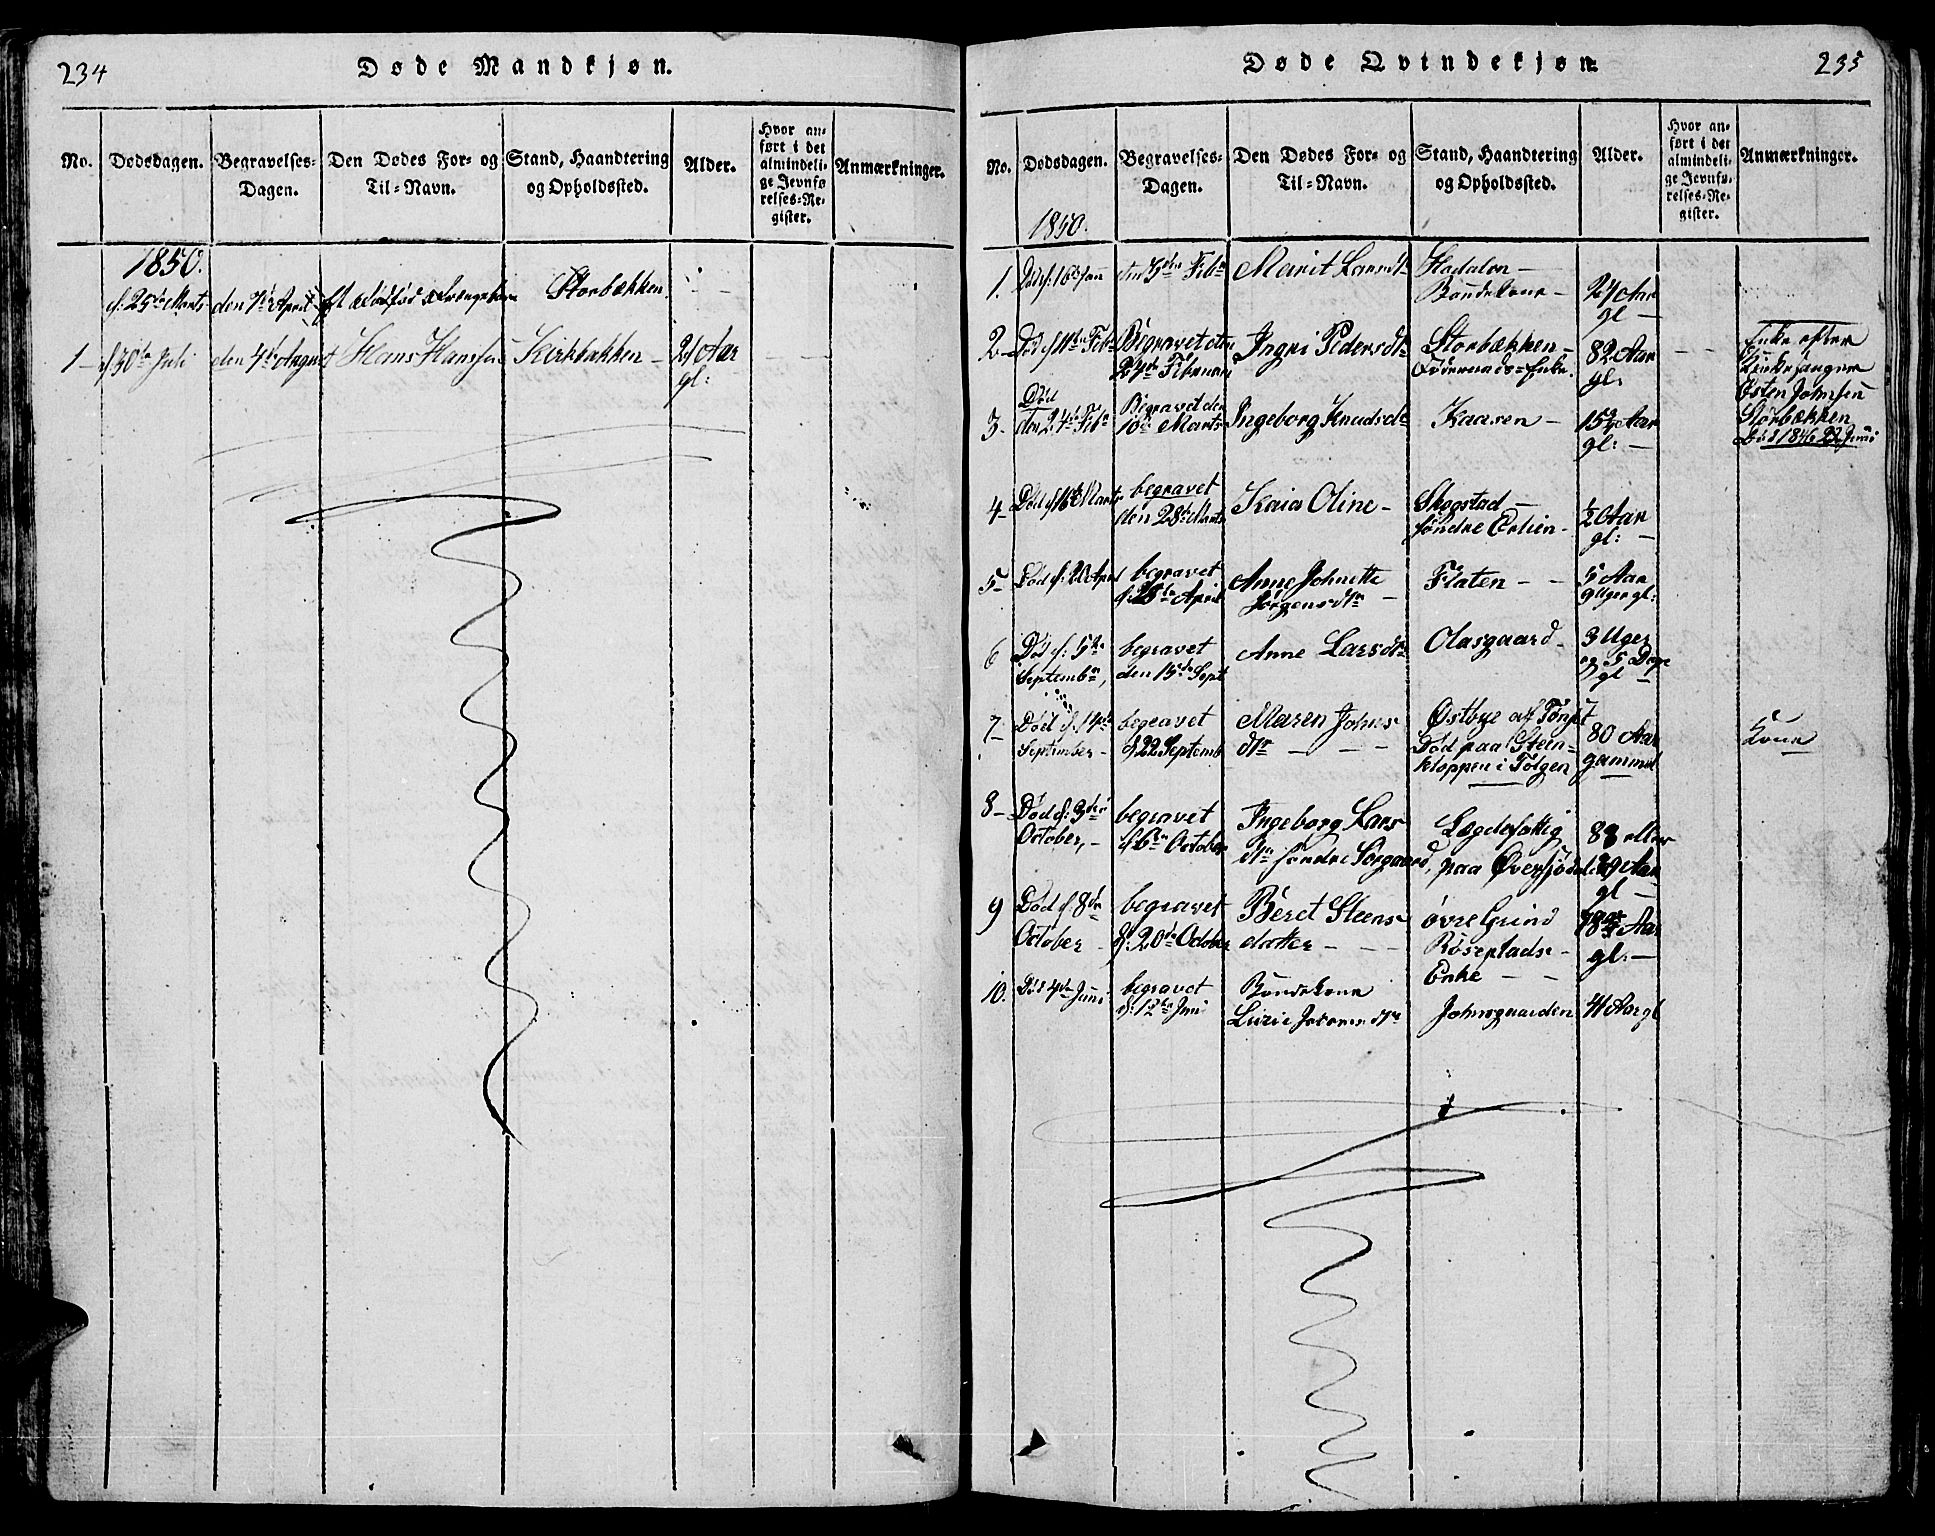 234
Døde Mandkjøn.
No.
Dødsdagen.
Begravelses-
Dagen.
Den Dødes For- og
Til-Navn.
Stand, Haandtering
og Opholdssted.
Alder.
Hvor an-
ført i det
almindeli-
ge Jevnfø
relses-Re-
gister.
Anmærkninger.
1850.
d: 25de Marts
den 7de April
Et dødfød Drengebarn
Storbækken
1 –
d 30te Juli
den 4de August
Hans Hansen
Kirkbakken –
21 Aar
gl:
Døde Qvindekjøn
235
No.
Dødsdagen.
Begravelses-
Dagen.
Den Dødes For- og
Til-Navn.
Stand, Haandtering
og Opholdssted.
Alder.
Hvor an-
ført i det
almindeli-
ge Jevnfø-
relses-Re-
gister.
Anmærkninger.
1850.
1.
16de Jan
den 3die Febr
Marit
Bondekone –
27 Aar
gl –
2 –
Død d 11te Febr
Begravet den
24de Februari
Ingri Pedersdtr
Storbækken –
Enke.
82 Aar
gl:
Enke efter
Kirkesanger
Østen Johnsen
Storbækken
Død 1846 22 Juni
3.
Død
den 24de Febr
Begravet den
10de Marts
Ingeborg Knudsdtr
Kaasen –
Aar
gl: –
4 –
Død d 16de Marts
begravet
den 28de Marts
Kaia Oline –
Skogstad –
søndre Erlien –
½ Aar
gl: –
5 –
Død d: 20 April
begravet
d: 28de April
Anne Johnette
Jørgensdtr –
Flaten – –
5 Aar
9 Uger gl:
6
Død d: 5te
Septembr,
begravet
den 15de Sept
Anne Larsdtr
Olasgaard –
3 Uger
og 5 Dage
gl –
7 –
Død d: 14de
September –
begravet
d 22 Septemb
Maren Johns
dtr – – –
Østbye af Tønset
Død paa Steen-
kloppen i Tolgen
80 Aar
gammel
Kone
8 –
Død d: 3die
October, –
begravet
d 6te October
Ingeborg Lars
dtr søndre Sørgaard,
Lægdefattig
paa Øversjødalen
88 eller
89 Aar
gl –
9
Død d: 8de
October –
begravet
d: 20de October
Beret Steens
datter – – –
øvre Grind
Røseplads –
Enke – –
Aar
gl: –
10.
Død 4de Juni
begravet
d: 12te Juni
Bondekone
Johnsgaarden
41 Aar gl